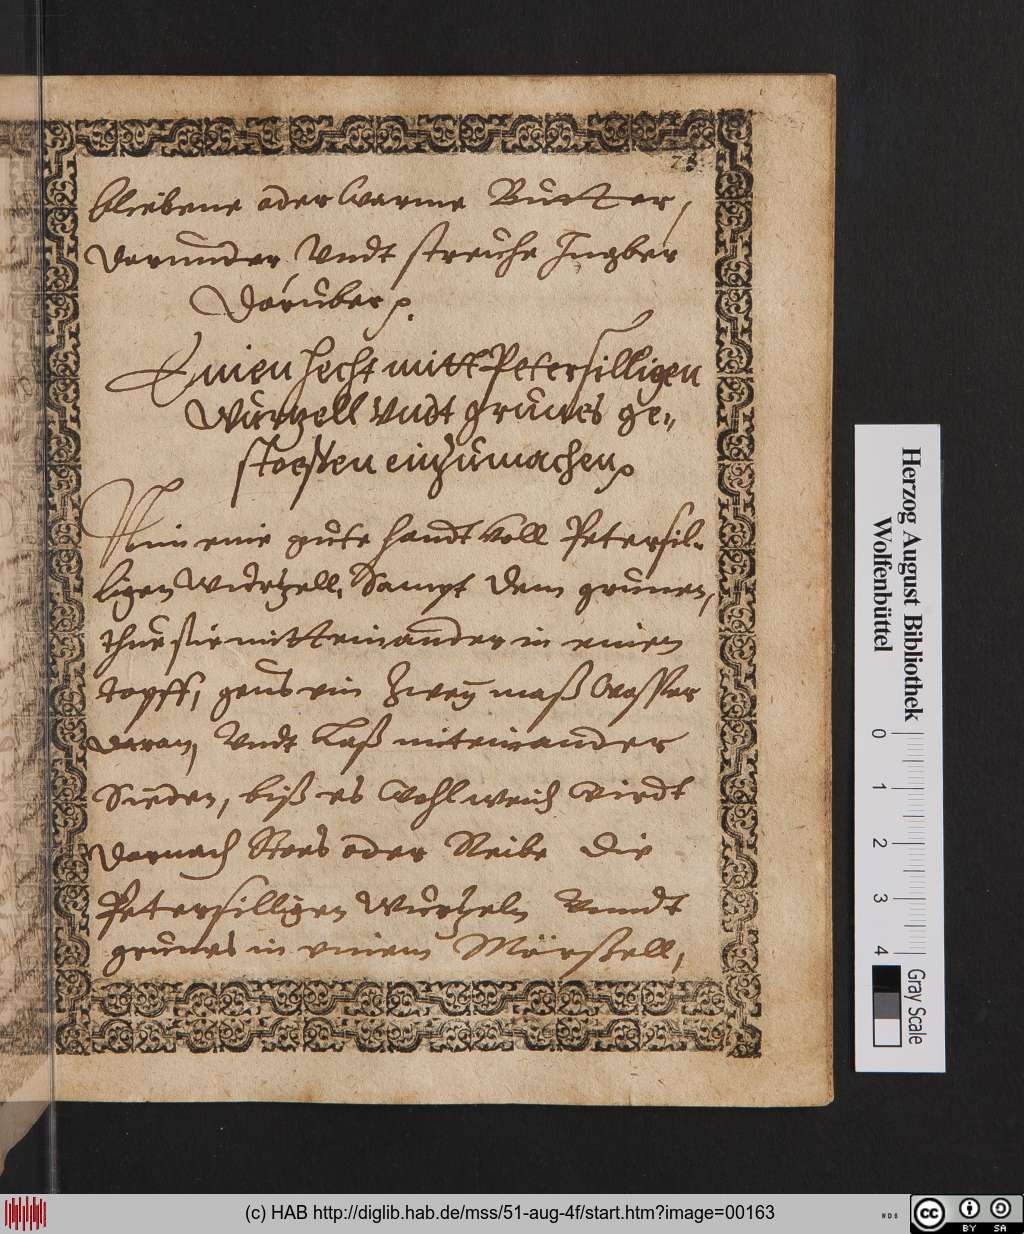 73
bliebene oder warme Butter,
darunder, Undt streuhe Ingber
darüber.
Einen Hecht mitt Petersilligen
Wurtzell Undt grünes ge-
stoeßen einzumachen
Nim eine gute handt voll Petersil-
ligen Wurtzell, Sampt dem grünen,
thue sie mitt einander in einen
topff, geus ein Zwey maß Wasser
daran, Undt Laß miteinander
Sieden, biß es Wohl weich Wirdt
darnach Stoes oder Reibe die
Petersilligen Wurtzeln Unndt
grünes in einem Mörßell,
Herzog August Bibliothek
Wolfenbüttel
0 1 2 3 4
Gray Scale
(c) HAB http://diglib.hab.de/mss/51-aug-4f/start.htm?image=00163
WDB
cc
BY SA